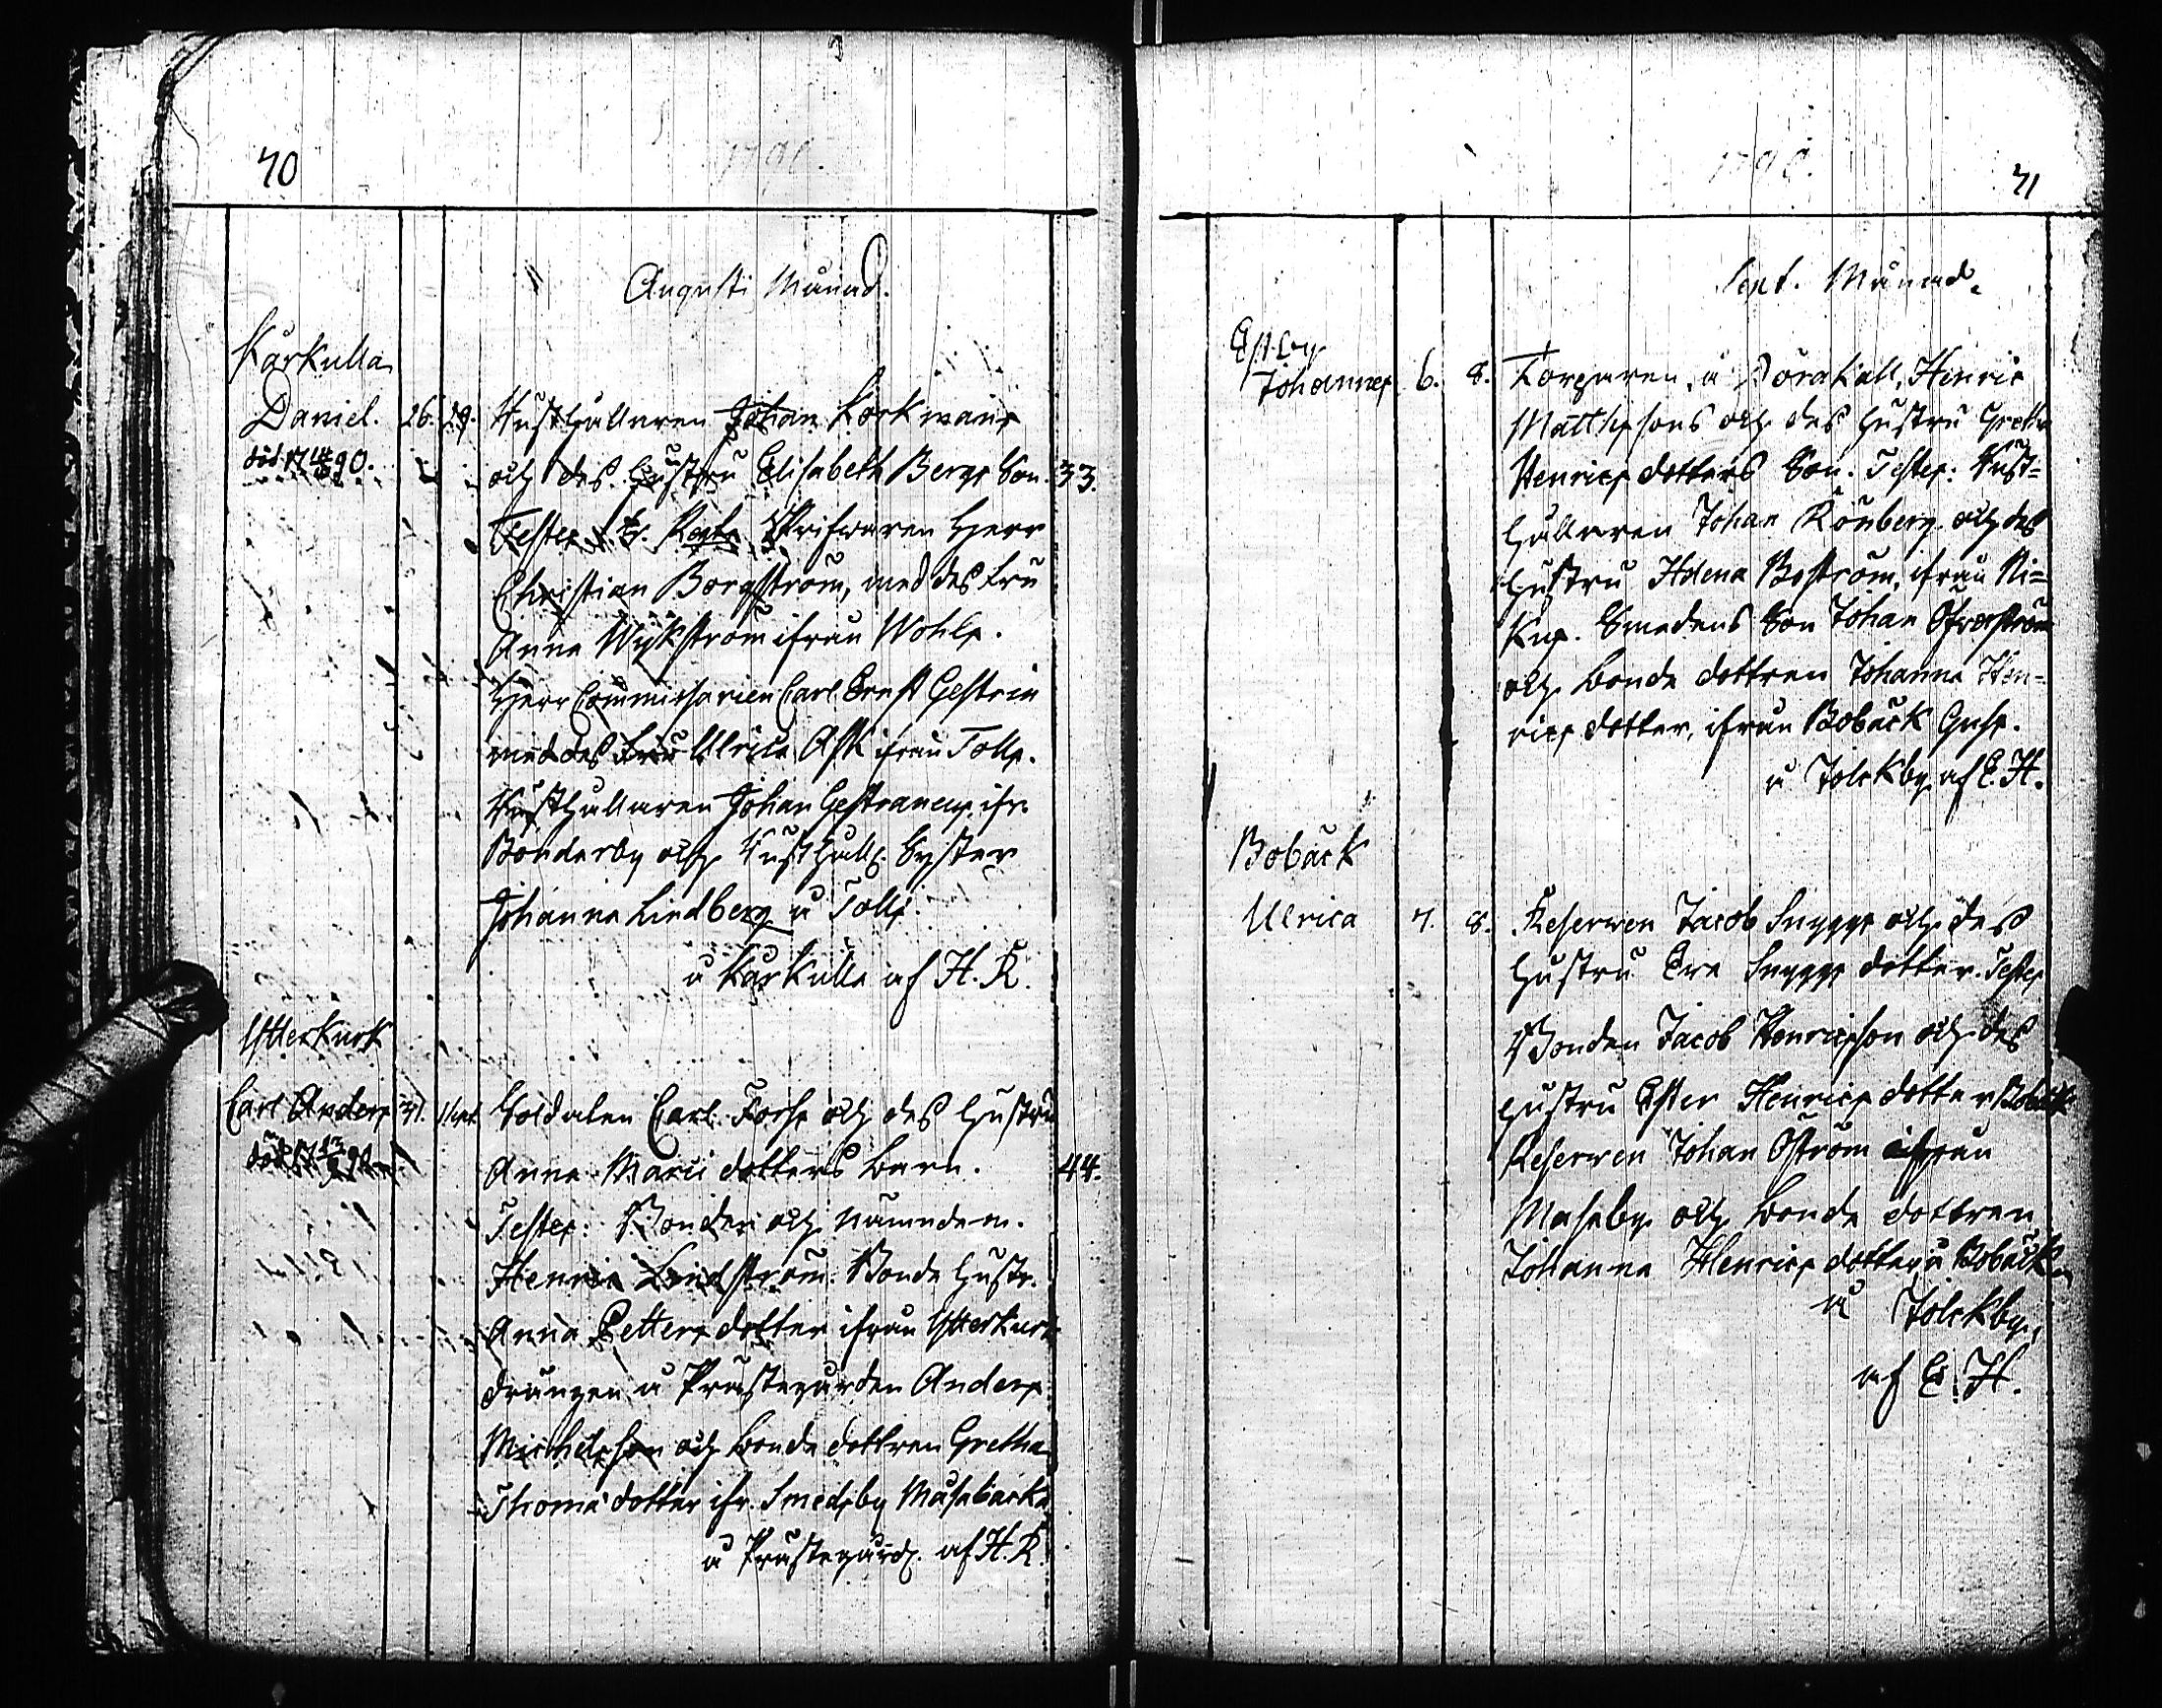 70
1790.
Augusti Månad.
Karkulla
Daniel. 26. 29. Rusthållaren Johan Korkmans
död 17 90. och des Hustru Elisabeth Bergs Son. 33.
Testes Skrifvaren Herr
Christian Borgström, med des Fru
Anna Wykström ifrån Wohls.
Herr Commissarien Carl Ernst Gestrin
med des Fru Ulrica Ask ifrån Tolls.
Rusthållaren Johan ifr.
Bonderby och Rusthåll. Syster
Johanna Lindberg å Tolls.
å Karkulla af H. R.
Ytterkurk
Carl Anders 31. 1 Sept. Soldaten Carl Fors och des Hustru
död 17 90 Anna Marii dotters barn. 44.
Testes: Bonden och nämndem.
Henric Lindström. Bonde Hustr.
Anna Petters dotter ifrån Ytterkurk
drängen å Prästegården Anders
Michelsson och bonde dottren Gretha
Thomæ dotter ifr. Smedsby Måsabacka
å Prästegård. af H. R.
1790.
71
Sept. Månad.
Estby
Johannes 6. 8. Torparen å Henric
Matthssons och des Hustru Gretha
Henrics dotters Son. Testes: Rust-
hållaren Johan Rönberg och des
Hustru Helena Boström, ifrån Ni-
kus. Smedens Son Johan
och bonde dottren Johanna Hen-
rics dotter, ifrån Bobäck Gusf.
å Tolckby af E. H.
Bobäck
Ulrica 7. 8. Reserven Jacob Snyggs och des
Hustru Eva Snyggs dotter. Testes
Bonden Jacob Henricsson och des
Hustru Ester Henrics dotter Bobäck
Reserven Johan Öström ifrån
Masaby och bonde dottren
Johanna Henrics dotter å Bobäck
å Tolckby,
af E. H.